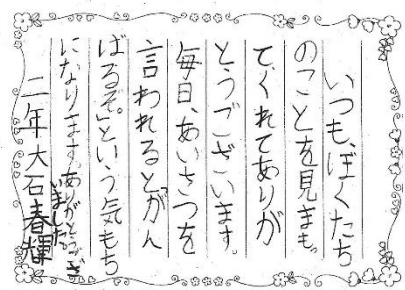 いつも、ぼくたち
のことを見まも
てくれてありが
とうございます。
毎日、あいさつを
言われると「がん
ばるぞ。」という気もち
になります。ありがとうござ
いました。
二年大石春輝